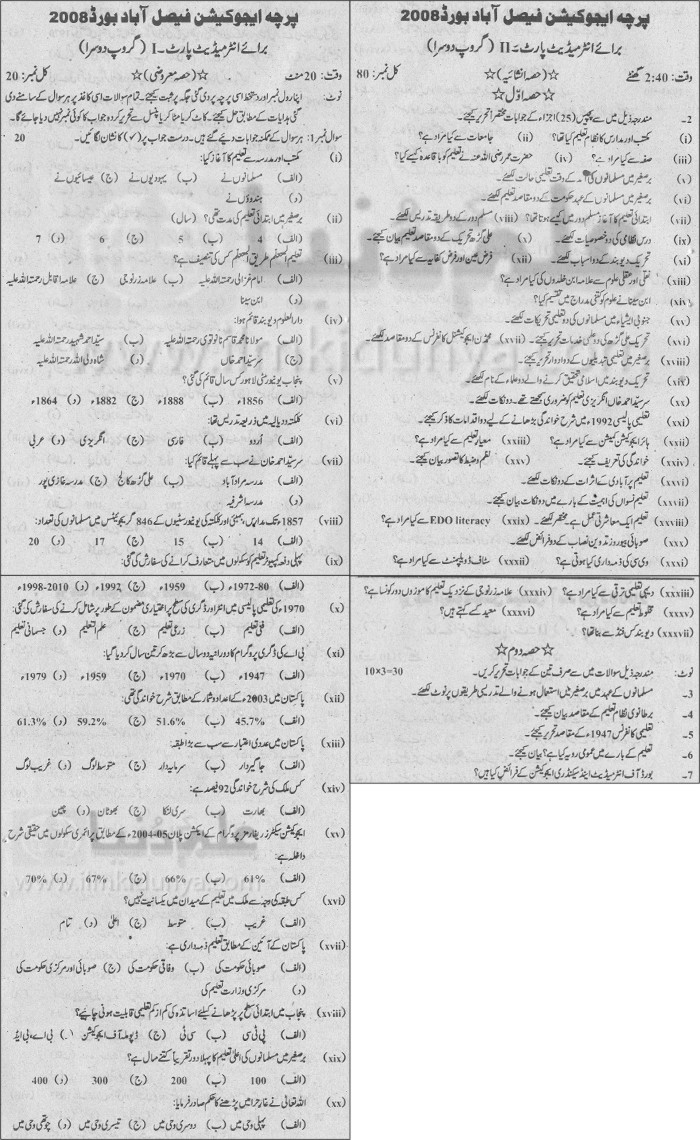 پرچہ ایجوکیشن فیصل آباد بورڈ 2008
برائے انٹرمیڈیٹ پارٹ۔II (گروپ دوسرا)
وقت: 2:40 گھنٹے ☆(حصہ انشائیہ)☆ کل نمبر: 80
☆حصہ اوّل☆
2- مندرجہ ذیل میں سے پچیس (25) اجزاء کے جوابات مختصراً تحریر کیجئے۔
(i) مکتب اور مدارس کا نظام تعلیم کیا تھا؟ (ii) جامعات سے کیا مراد ہے؟
(iii) صفہ سے کیا مراد ہے؟ (iv) حضرت عمر رضی اللہ عنہ نے تعلیم کو باقاعدہ کیسے کیا؟
(v) برصغیر میں مسلمانوں کی آمد کے وقت تعلیمی حالت لکھئے۔
(vi) برصغیر میں مسلمانوں کے عہد حکومت کے دو مقاصد تعلیم لکھئے۔
(vii) ابتدائی تعلیم کا آغاز مسلم دور میں کیسے ہوتا تھا؟ (viii) مسلم دور کے دو طریقہ تدریس لکھئے۔
(ix) درس نظامی کی دو خصوصیات لکھئے۔ (x) علی گڑھ تحریک کے دو مقاصد تعلیم بیان کیجئے۔
(xi) تحریک دیوبند کے دو اسباب لکھئے۔ (xii) فرض عین اور فرض کفایہ سے کیا مراد ہے؟
(xiii) نقلی اور عقلی علوم سے علامہ ابن خلدون کی کیا مراد ہے؟
(xiv) ابن سینا نے علوم کو کتنی مدارج میں تقسیم کیا؟
(xv) جنوبی ایشیاء میں مسلمانوں کی دو تعلیمی تحریکات لکھئے۔
(xvi) تحریک علی گڑھ کی دو علمی خدمات تحریر کیجئے۔ (xvii) محمڈن ایجوکیشنل کانفرنس کے دو مقاصد لکھئے۔
(xviii) برصغیر میں تعلیمی تبدیلیوں کے دو ادوار تحریر کیجئے۔
(xix) تحریک دیوبند میں اسلامی تحقیق کرنے والے دو علماء کے نام لکھئے۔
(xx) سرسید احمد خاں انگریزی تعلیم کو ضروری سمجھتے تھے۔ دو نکات لکھئے۔
(xxi) تعلیمی پالیسی 1992ء میں شرح خواندگی بڑھانے کے لیے دو اقدامات کا ذکر کیجئے۔
(xxii) ہائر ایجوکیشن کمیشن سے کیا مراد ہے؟ (xxiii) معیار تعلیم سے کیا مراد ہے؟
(xxiv) خواندگی کی تعریف کیجئے۔ (xxv) نظم و ضبط کا تصور بیان کیجئے۔
(xxvi) تعلیم پر آبادی کے اثرات کے دو نکات لکھئے۔
(xxvii) تعلیم نسواں کی اہمیت کے بارے میں دو نکات بیان کیجئے۔
(xxviii) تعلیم ایک معاشرتی عمل ہے۔ مختصر لکھئے۔ (xxix) EDO literacy سے کیا مراد ہے؟
(xxx) صوبائی بیورو ز تدوین نصاب کے دو فرائض لکھئے۔
(xxxi) وی سی کی ذمہ داری کیا ہوتی ہے؟ (xxxii) سٹاف ڈویلپمنٹ سے کیا مراد ہے؟
(xxxiii) دیہی تعلیمی ترقی سے کیا مراد ہے؟ (xxxiv) علامہ زرنوجی کے نزدیک تعلیم کا موزوں دور کونسا ہے؟
(xxxv) مخلوط تعلیم سے کیا مراد ہے؟ (xxxvi) معید کسے کہتے ہیں؟
(xxxvii) دیوبند کس فنڈ سے بنا تھا؟
☆حصہ دوم☆
نوٹ: مندرجہ ذیل سوالات میں سے صرف تین کے جوابات تحریر کریں۔ 10×3=30
3- مسلمانوں کے عہد میں برصغیر میں استعمال ہونے والے تدریسی طریقوں پر نوٹ لکھئے۔
4- برطانوی نظام تعلیم کے مقاصد بیان کیجئے۔
5- تعلیمی کانفرنس 1947ء کے مقاصد تحریر کیجئے۔
6- تعلیم کے بارے میں عمومی رویہ کیا ہے؟ بیان کیجئے۔
7- بورڈ آف انٹرمیڈیٹ اینڈ سیکنڈری ایجوکیشن کے فرائض کیا ہیں؟
پرچہ ایجوکیشن فیصل آباد بورڈ 2008
برائے انٹرمیڈیٹ پارٹ۔I (گروپ دوسرا)
وقت: 20 منٹ ☆(حصہ معروضی)☆ کل نمبر: 20
نوٹ: اپنا رول نمبر اور دستخط اسی پرچہ پر دی گئی جگہ پر ثبت کیجئے۔ تمام سوالات اسی کاغذ پر ہر سوال کے سامنے دی
گئی ہدایات کے مطابق حل کیجئے۔ کاٹ کر یا مٹا کر یا پنسل سے تحریر کردہ جواب کا کوئی نمبر نہیں دیا جائے گا۔
سوال نمبر 1: ہر سوال کے ممکنہ جوابات دیئے گئے ہیں۔ درست جواب پر (✓) کا نشان لگائیں۔ 20
(i) مکتب اور مدرسہ سے تعلیم کا آغاز کیا:
(الف) مسلمانوں نے (ب) یہودیوں نے (ج) عیسائیوں نے
(د) ہندوؤں نے
(ii) برصغیر میں ابتدائی تعلیم کی مدت تھی؟ (سال)
(الف) 4 (ب) 5 (ج) 6 (د) 7
(iii) تعلیم المتعلم طریق التعلم کس کی تصنیف ہے؟
(الف) امام غزالی رحمتہ اللہ علیہ (ب) علامہ زرنوجی (ج) علامہ اقبال رحمتہ اللہ علیہ
(د) ابن سینا
(iv) دارالعلوم دیوبند قائم ہوا:
(الف) مولانا محمد قاسم نانوتوی رحمتہ اللہ علیہ (ب) سید احمد شہید رحمتہ اللہ علیہ
(ج) سرسید احمد خاں (د) شاہ ولی اللہ رحمتہ اللہ علیہ
(v) پنجاب یونیورسٹی لاہور کس سال قائم کی گئی؟
(الف) 1856ء (ب) 1888ء (ج) 1882ء (د) 1864ء
(vi) کلکتہ ودیالیہ میں ذریعہ تدریس تھا:
(الف) اُردو (ب) فارسی (ج) انگریزی (د) عربی
(vii) سرسید احمد خان نے سب سے پہلے قائم کیا:
(الف) مدرسہ مراد آباد (ب) علی گڑھ کالج (ج) مدرسہ غازی پور
(د) مدرسہ اشرفیہ
(viii) 1857ء تک مدراس، بمبئی اور کلکتہ کی یونیورسٹیوں کے 846 گریجوایٹس میں مسلمانوں کی تعداد:
(الف) 14 (ب) 15 (ج) 17 (د) 20
(ix) پہلی دفعہ کمپیوٹر تعلیم کو سکولوں میں متعارف کرانے کی سفارش کی گئی:
(الف) 1972-80ء (ب) 1959ء (ج) 1992ء (د) 1998-2010ء
(x) 1970ء کی تعلیمی پالیسی میں انٹر اور ڈگری کی سطح پر اختیاری مضمون کے طور پر شامل کرنے کی سفارش کی گئی:
(الف) فنی تعلیم (ب) زرعی تعلیم (ج) علم التعلیم (د) جسمانی تعلیم
(xi) بی اے کی ڈگری پروگرام کا دورانیہ دو سال سے بڑھ کر تین سال کر دیا گیا:
(الف) 1947ء (ب) 1970ء (ج) 1959ء (د) 1979ء
(xii) پاکستان میں 2003ء کے اعداد و شمار کے مطابق شرح خواندگی تھی:
(الف) 45.7% (ب) 51.6% (ج) 59.2% (د) 61.3%
(xiii) پاکستان میں عددی اعتبار سے سب سے بڑا طبقہ:
(الف) جاگیردار (ب) سرمایہ دار (ج) متوسط لوگ (د) غریب لوگ
(xiv) کس ملک کی شرح خواندگی 92 فیصد ہے:
(الف) بھارت (ب) سری لنکا (ج) بھوٹان (د) چین
(xv) ایجوکیشن سیکٹرز ریفارمز پروگرام کے ایکشن پلان 2004-05ء کے مطابق پرائمری سکولوں میں حقیقی شرح
داخلہ ہے:
(الف) 61% (ب) 66% (ج) 67% (د) 70%
(xvi) کس طبقہ کی وجہ سے ملک میں تعلیم کے میدان میں یکسانیت نہیں؟
(الف) غریب (ب) متوسط (ج) اعلیٰ (د) تمام
(xvii) پاکستان کے آئین کے مطابق تعلیم ذمہ داری ہے:
(الف) صوبائی حکومت کی (ب) وفاقی حکومت کی (ج) صوبائی اور مرکزی حکومت کی
(د) مرکزی وزارت تعلیم کی
(xviii) پنجاب میں ابتدائی سطح پر پڑھانے کیلئے اساتذہ کی کم از کم تعلیمی قابلیت ہونی چاہیے؟
(الف) پی ٹی سی (ب) سی ٹی (ج) ڈپلومہ آف ایجوکیشن بی اے، بی ایڈ
(xix) برصغیر میں مسلمانوں کی اعلیٰ تعلیم کا پہلا دور تقریباً کتنے سال ہے؟
(الف) 100 (ب) 200 (ج) 300 (د) 400
(xx) اللہ تعالیٰ نے غار حرا میں پڑھنے کا حکم صادر فرمایا:
(الف) پہلی وحی میں (ب) دوسری وحی میں (ج) تیسری وحی میں (د) چوتھی وحی میں
علم کی دُنیا
www.ilmkidunya.com